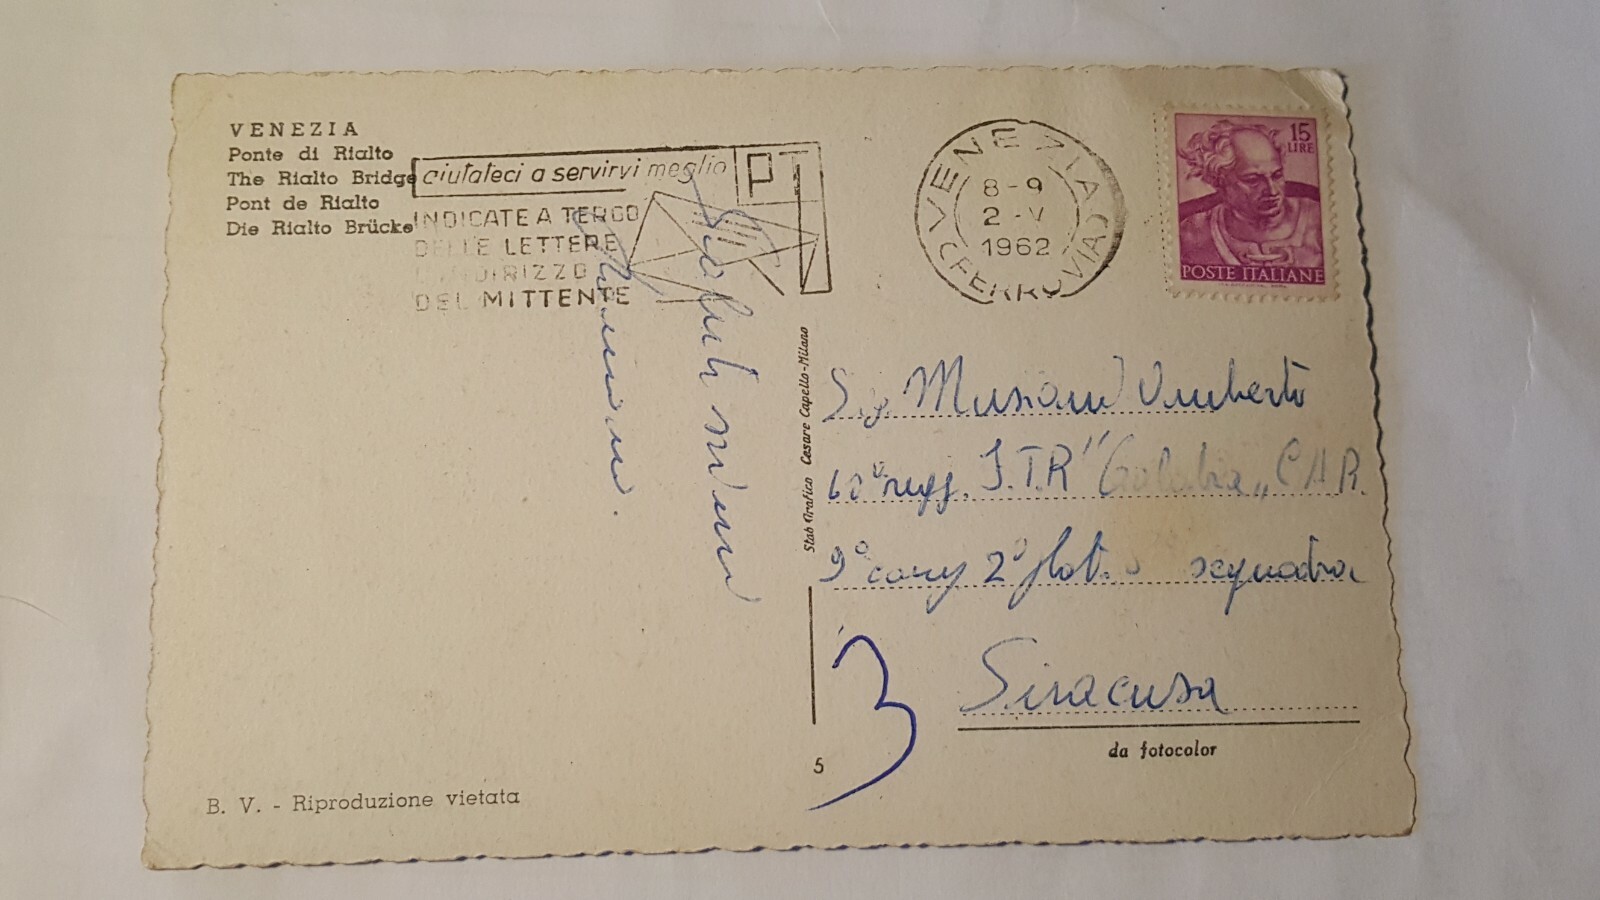 VENEZIA
Ponte di Rialto
The Rialto Bridge
Pont de Rialto
Die Rialto Brücke
aiutateci a servirvi meglio
PT
INDICATE A TERGO
DELLE LETTERE
L'INDIRIZZO
DEL MITTENTE
VENEZIA
8-9
2-V
1962
(FERROVIA)
15
LIRE
POSTE ITALIANE
Saluti
Stab Grafico Cesare Capello-Milano
Sig. Umberto
60° regg. I.T.R "Calabria" CAR.
9° comp 2° squadra
Siracusa
3
da fotocolor
5
B. V. - Riproduzione vietata